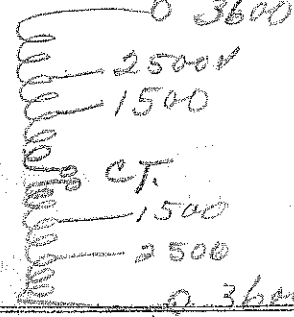 0 3600
2500V
1500
CT.
1500
2500
0 360